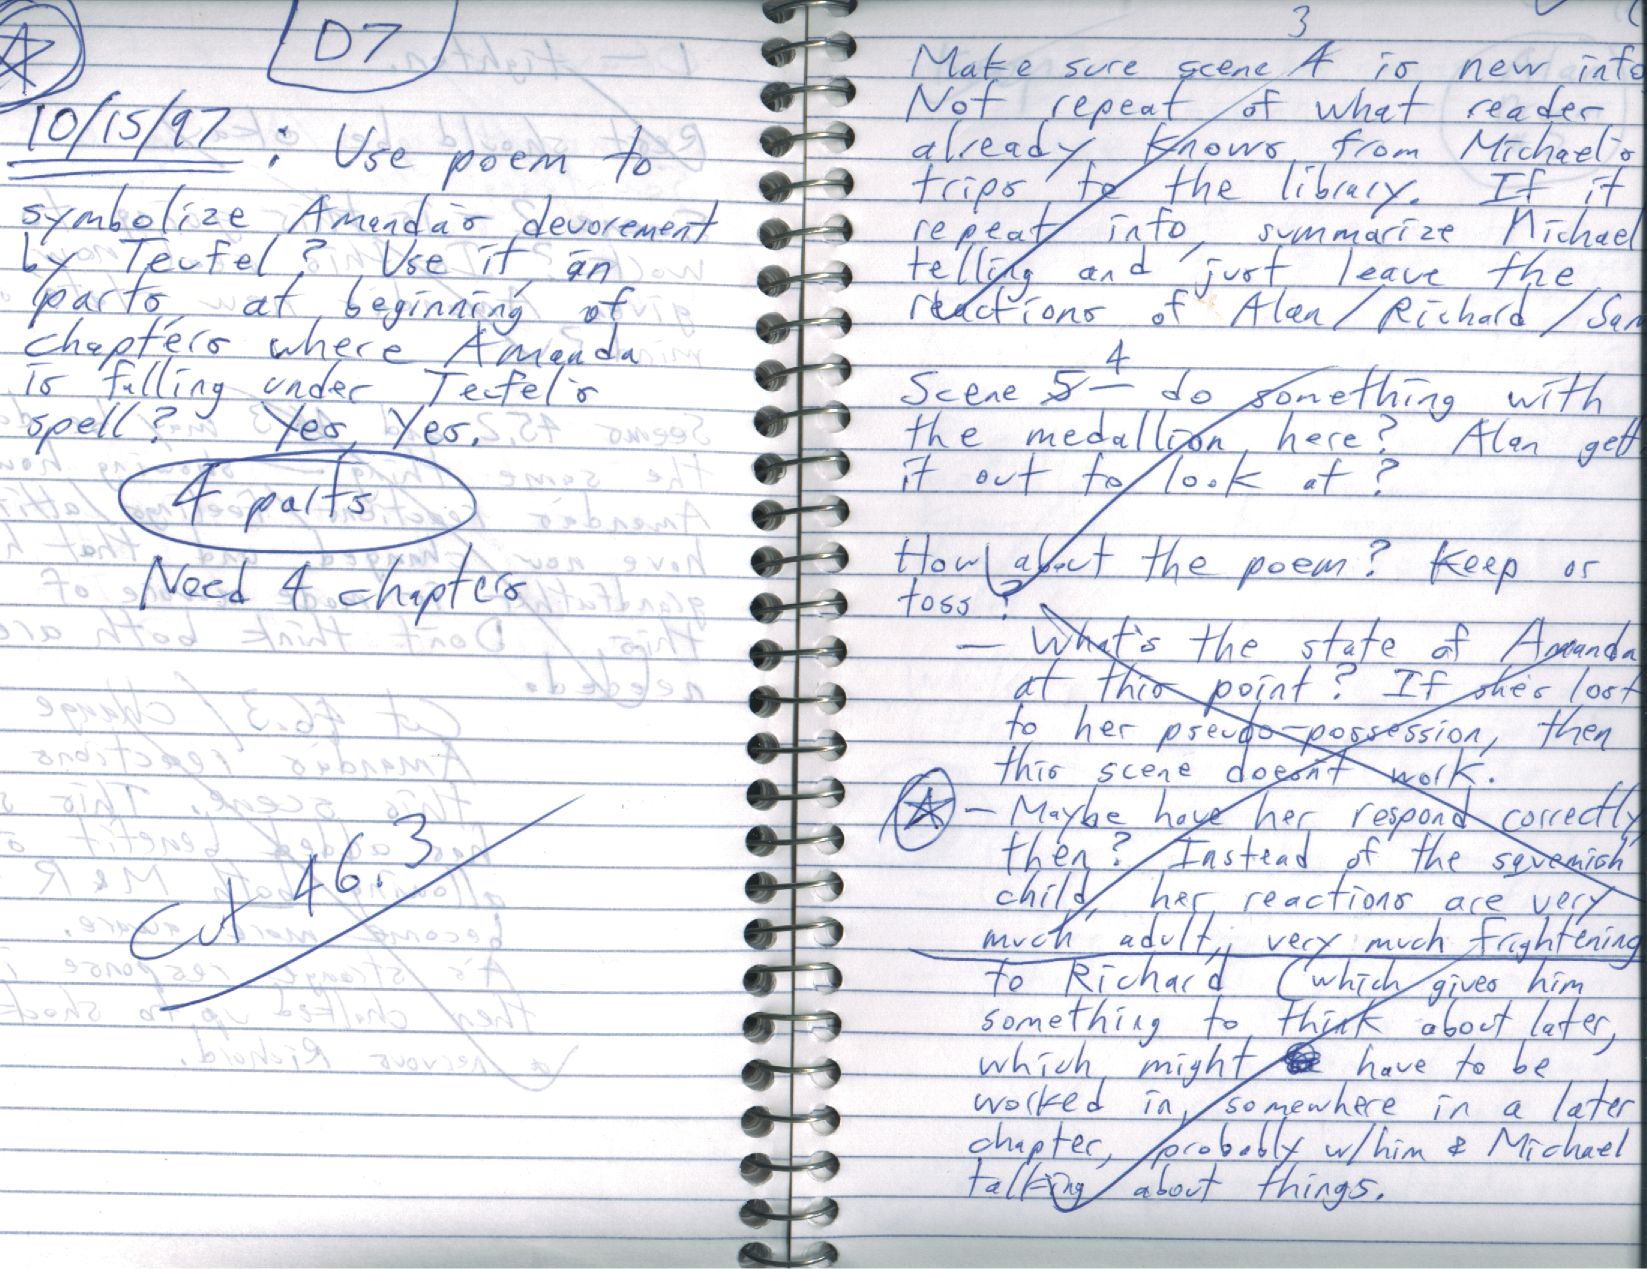 D7
10/15/97 : Use poem to
symbolize Amanda's devorement
by Teufel? Use it in
parts, at beginning of
chapters where Amanda
is falling under Teufel's
spell? Yes, Yes.
4 parts
Need 4 chapters
Cut 46.3
3
Make sure scene 4 is new info
Not repeat of what reader
already knows from Michael's
trips to the library. If it
repeat info, summarize Michael
telling and just leave the
reactions of Alan/Richard/Sam
4
Scene 5 — do something with
the medallion here? Alan gett
it out to look at?
How about the poem? Keep or
toss?
— What's the state of Amanda
at this point? If she's lost
to her pseudo-possession, then
this scene doesn't work.
— Maybe have her respond correctly
then? Instead of the squemish
child, her reactions are very
much adult, very much frightening
to Richard (which gives him
something to think about later,
which might have to be
worked in somewhere in a later
chapter, probably w/him & Michael
talking about things.